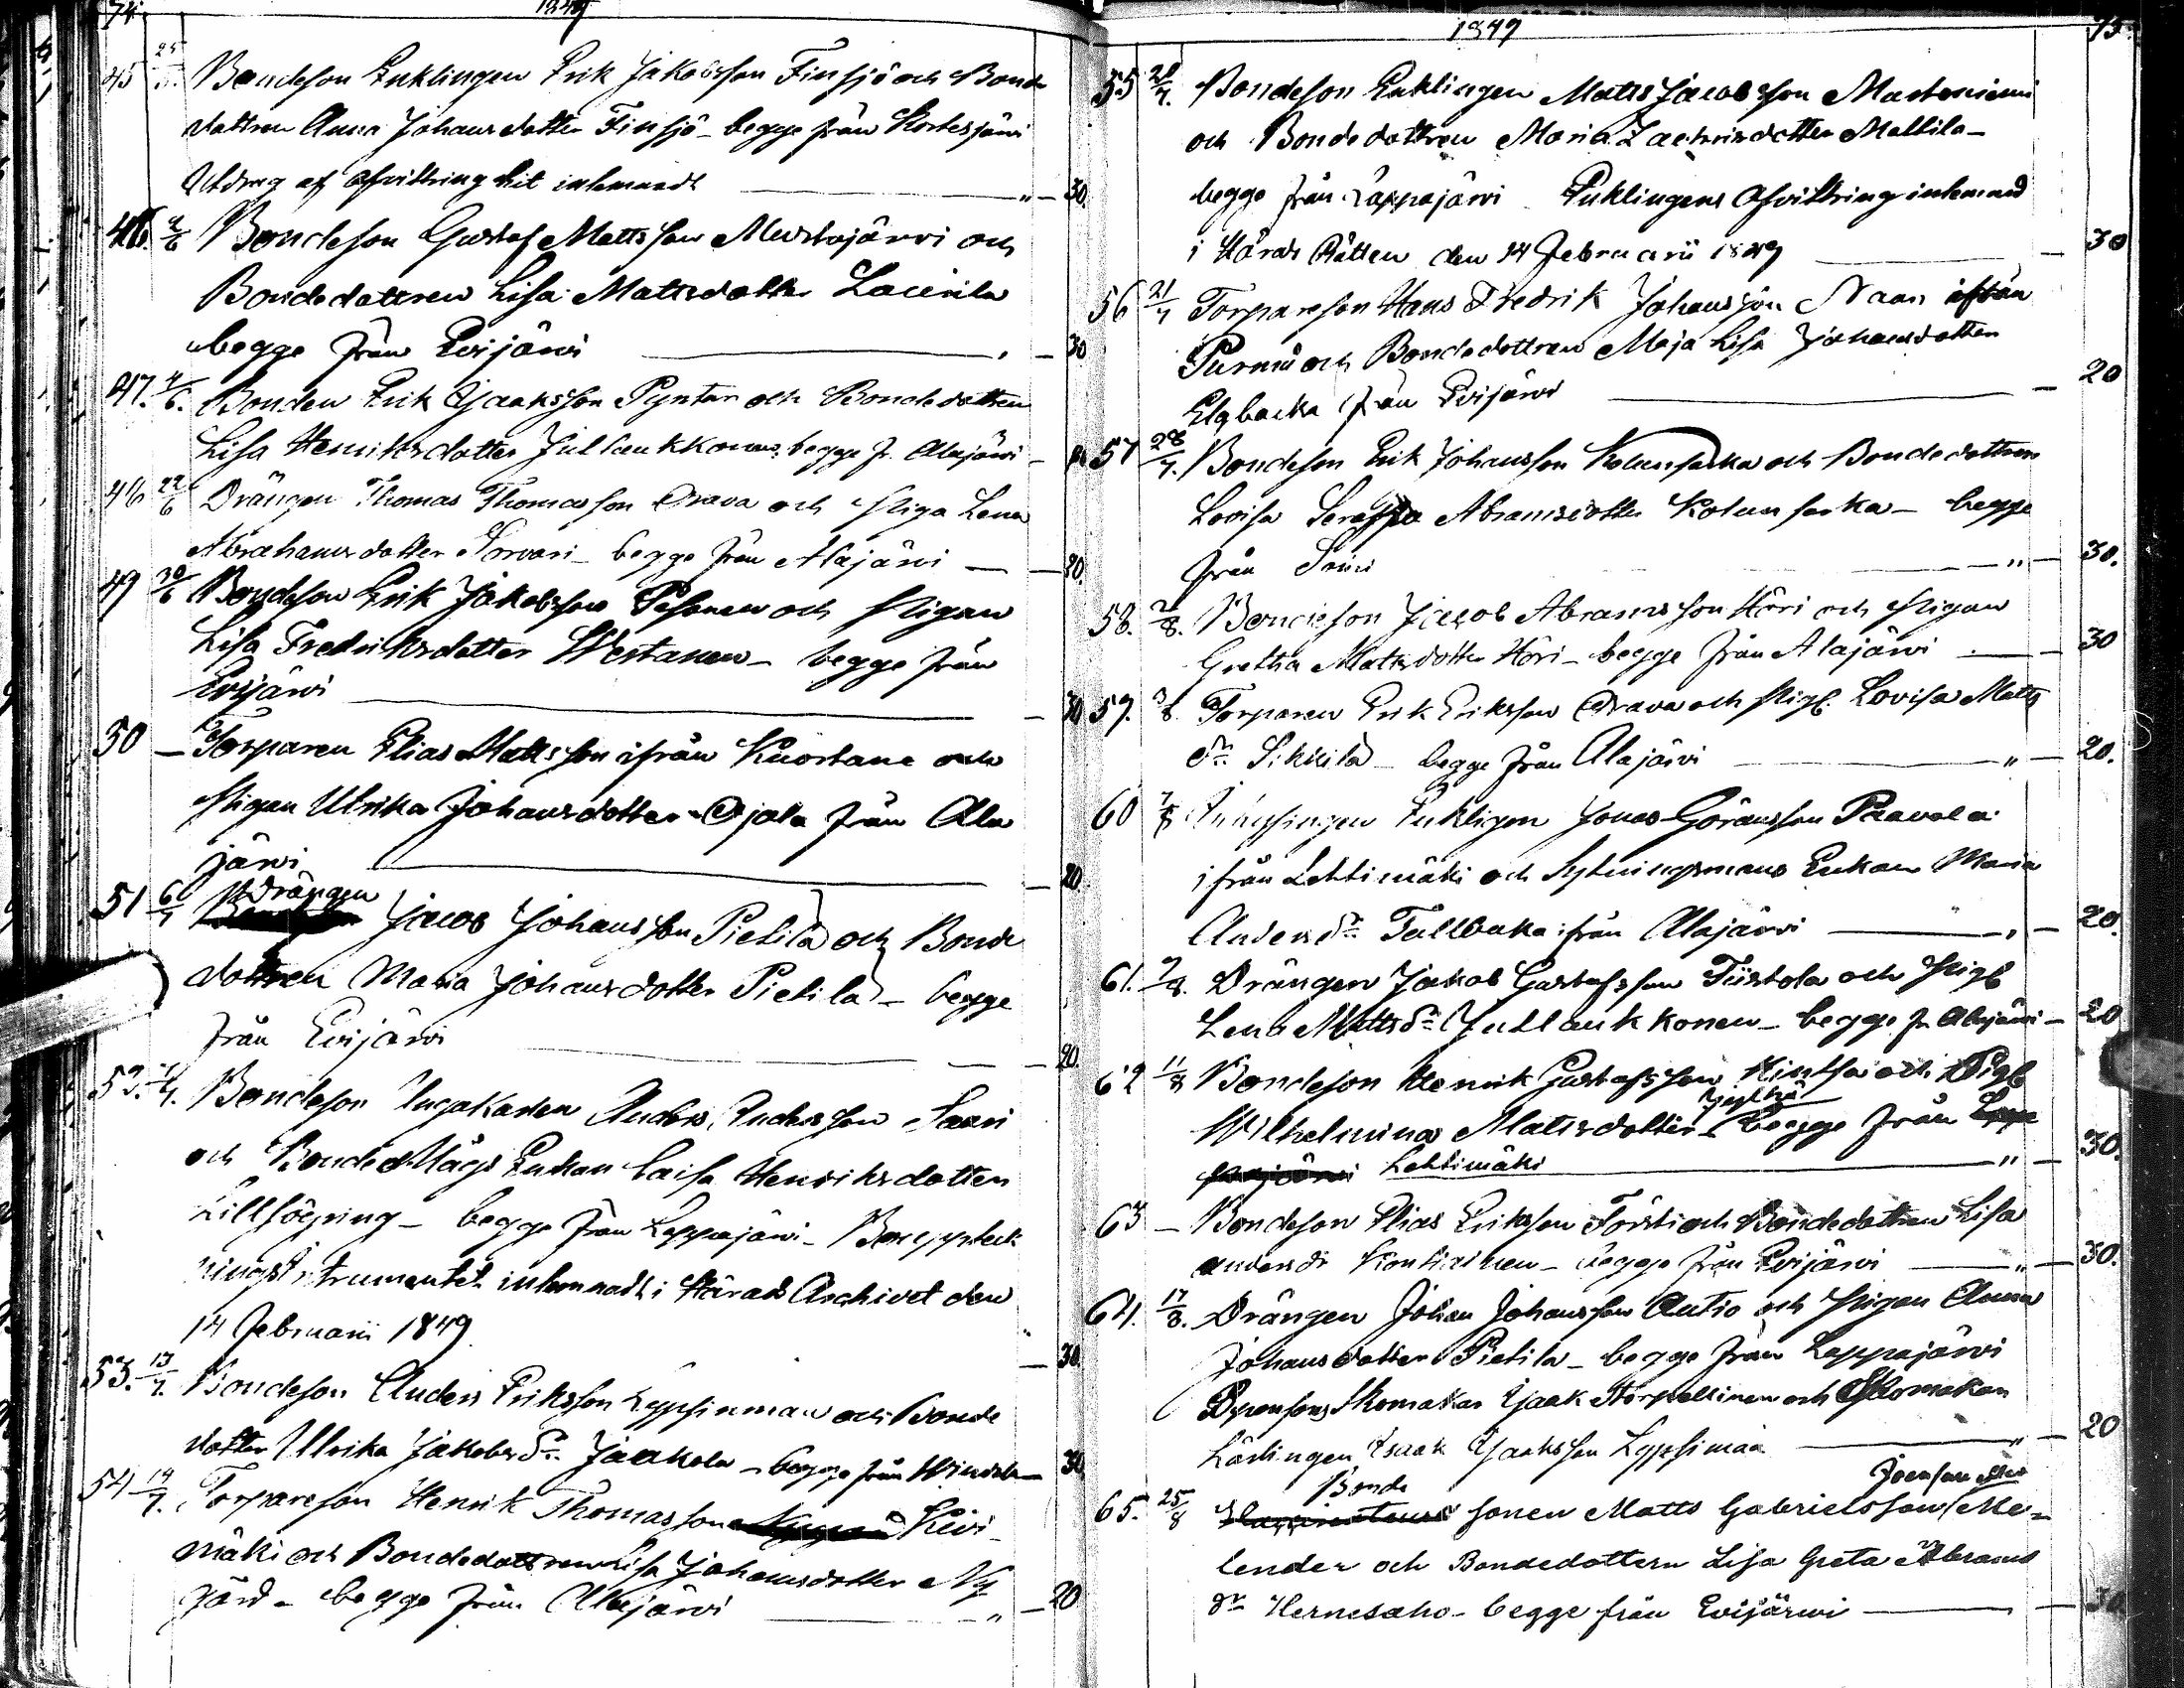 74.
1849
45 25/5. Bondeson Enklingen Erik Jakobsson Finsjö och Bonde
dottren Anna Johansdotter Finsjö - begge från Kortesjärvi
Utdrag af afvittring hit inlemnadt " - 30.
46. 2/6 Bondeson Gustaf Mattsson Mustajärvi och
Bondedottren Lisa Mattsdotter Laurila
begge från Evijärvi - 30
47. 4/6. Bonden Erik Isaaksson Pyntar och Bondedottren
Lisa Henriksdotter Jullaukkonen, begge fr. Alajärvi -
48 22/6 Drängen Thomas Thomasson Orava och Pigan Lena
Abrahamsdotter Torvari - begge från Alajärvi - 20.
49 30/6 Bondeson Erik Jakobsson Pesonen och Pigan
Lisa Fredriksdotter Westanen - begge från
Evijärvi - 30
50 - Torparen Elias Mattsson ifrån Kuortane och
Pigan Ulrika Johansdotter Ojala från Ala
järvi - 20.
51 6/7 Drängen Jacob Johansson Pietilä och Bonde
dottren Maria Johansdotter Pietilä - begge
från Evijärvi - 20.
52. 7/7. Bondeson Ungkarlen Anders Andersson Saari
och Bonde Mågs Enkan Caisa Henriksdotter
Lillsöyring - begge från Lappajärvi - Bouppteck
ningsinstrumentet inlemnadt i Härads Archivet den
14 Februarii 1849 - 30.
53. 13/7. Bondeson Anders Eriksson Leppsinman och Bonde
dotter Ulrika Jakobs dr Jaakola - begge från Windala - 30
54 14/7. Torpareson Henrik Thomasson Kivi-
mäki och Bondedottren Lisa Johansdotter Ny
gård - begge från Alajärvi " - 20
1849
75.
55 20/7. Bondeson Enklingen Matts Jacobsson Martoniemi
och Bondedottren Maria Zachrisdotter Mattila -
begge från Lappajärvi Enklingens Afvittring inlemnad
i Härads Rätten den 14 Februarii 1849 - 30
56 21/7 Torpareson Hans Fredrik Johansson Naan ifrån
Purmo och Bondedottren Maja Lisa Johansdotter
Elgbacka från Evijärvi - 20
57 28/7. Bondeson Erik Johansson Kolunsarka och Bondedottren
Lovisa Abramsdotter Kolunsarka - begge
från Soini " - 30.
58. 2/8. Bondeson Jacob Abramsson Höri och Pigan
Gretha Mattsdotter Höri - begge från Alajärvi - 30
59. 3/8. Torparen Erik Eriksson Orava och Pig. Lovisa Matts
dr Sikkilä - begge från Alajärvi " - 20.
60 7/8 Enklingen Jonas Göransson Paavola
ifrån Lehtimäki och Sytningsmans Enkan Maria
Anders dr Tallbaka ifrån Alajärvi " - 20.
61. 9/8. Drängen Jakob Gustafsson Tiistola och Pig.
Lena Matts dr Jullaukkonen - begge fr Alajärvi - 20
62 11/8 Bondeson Henrik Gustafsson Hintsa och Pig.
Wilhelmina Mattsdotter - begge från Lappa
järvi Lehtimäki " - 30.
63 - Bondeson Elias Eriksson Försti och Bondedottren Lisa
Anders dr Kontiainen - begge från Evijärvi " - 30.
64. 17/8. Drängen Johan Johansson Autio och Pigan Anna
Johansdotter Pietilä - begge från Lappajärvi
Skomakar Isaak Storpellinen och Skomakar
Lärlingen Isaak Isaaksson Leppsimaa " - 20
65. 25/8 Bonde sonen Matts Gabrielsson Joensuu eller Me-
lender och Bondedottern Lisa Greta Abrams
dr Hernesaho - begge från Evijärwi - 30.